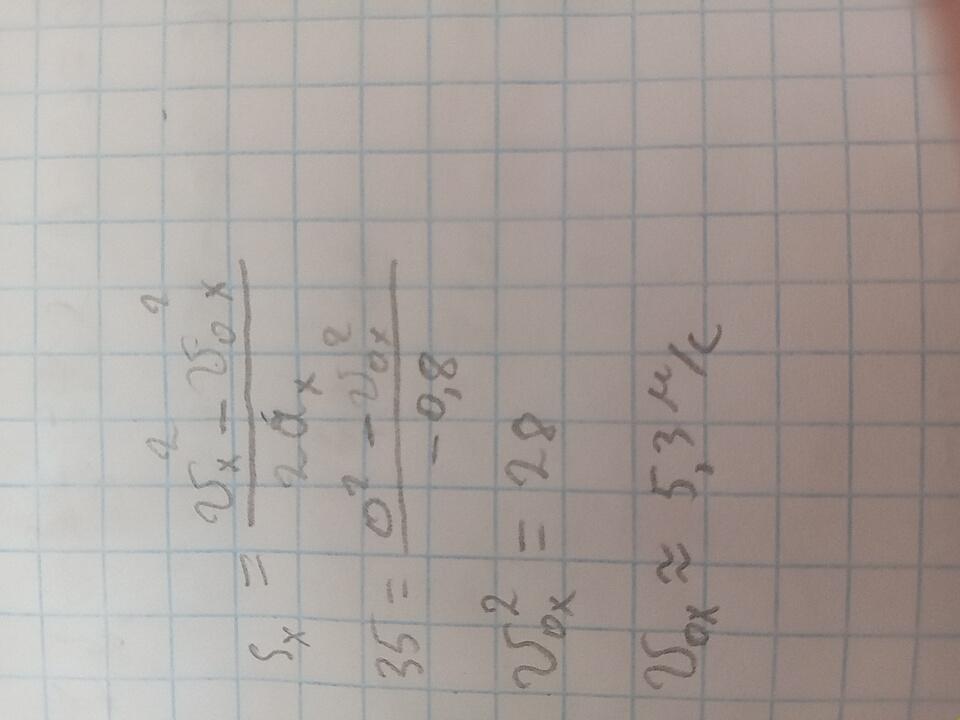 Sₓ = (υₓ² − υ₀ₓ²) / 2aₓ
35 = (0² − υ₀ₓ²) / −0,8
υ₀ₓ² = 28
υ₀ₓ ≈ 5,3 м/с